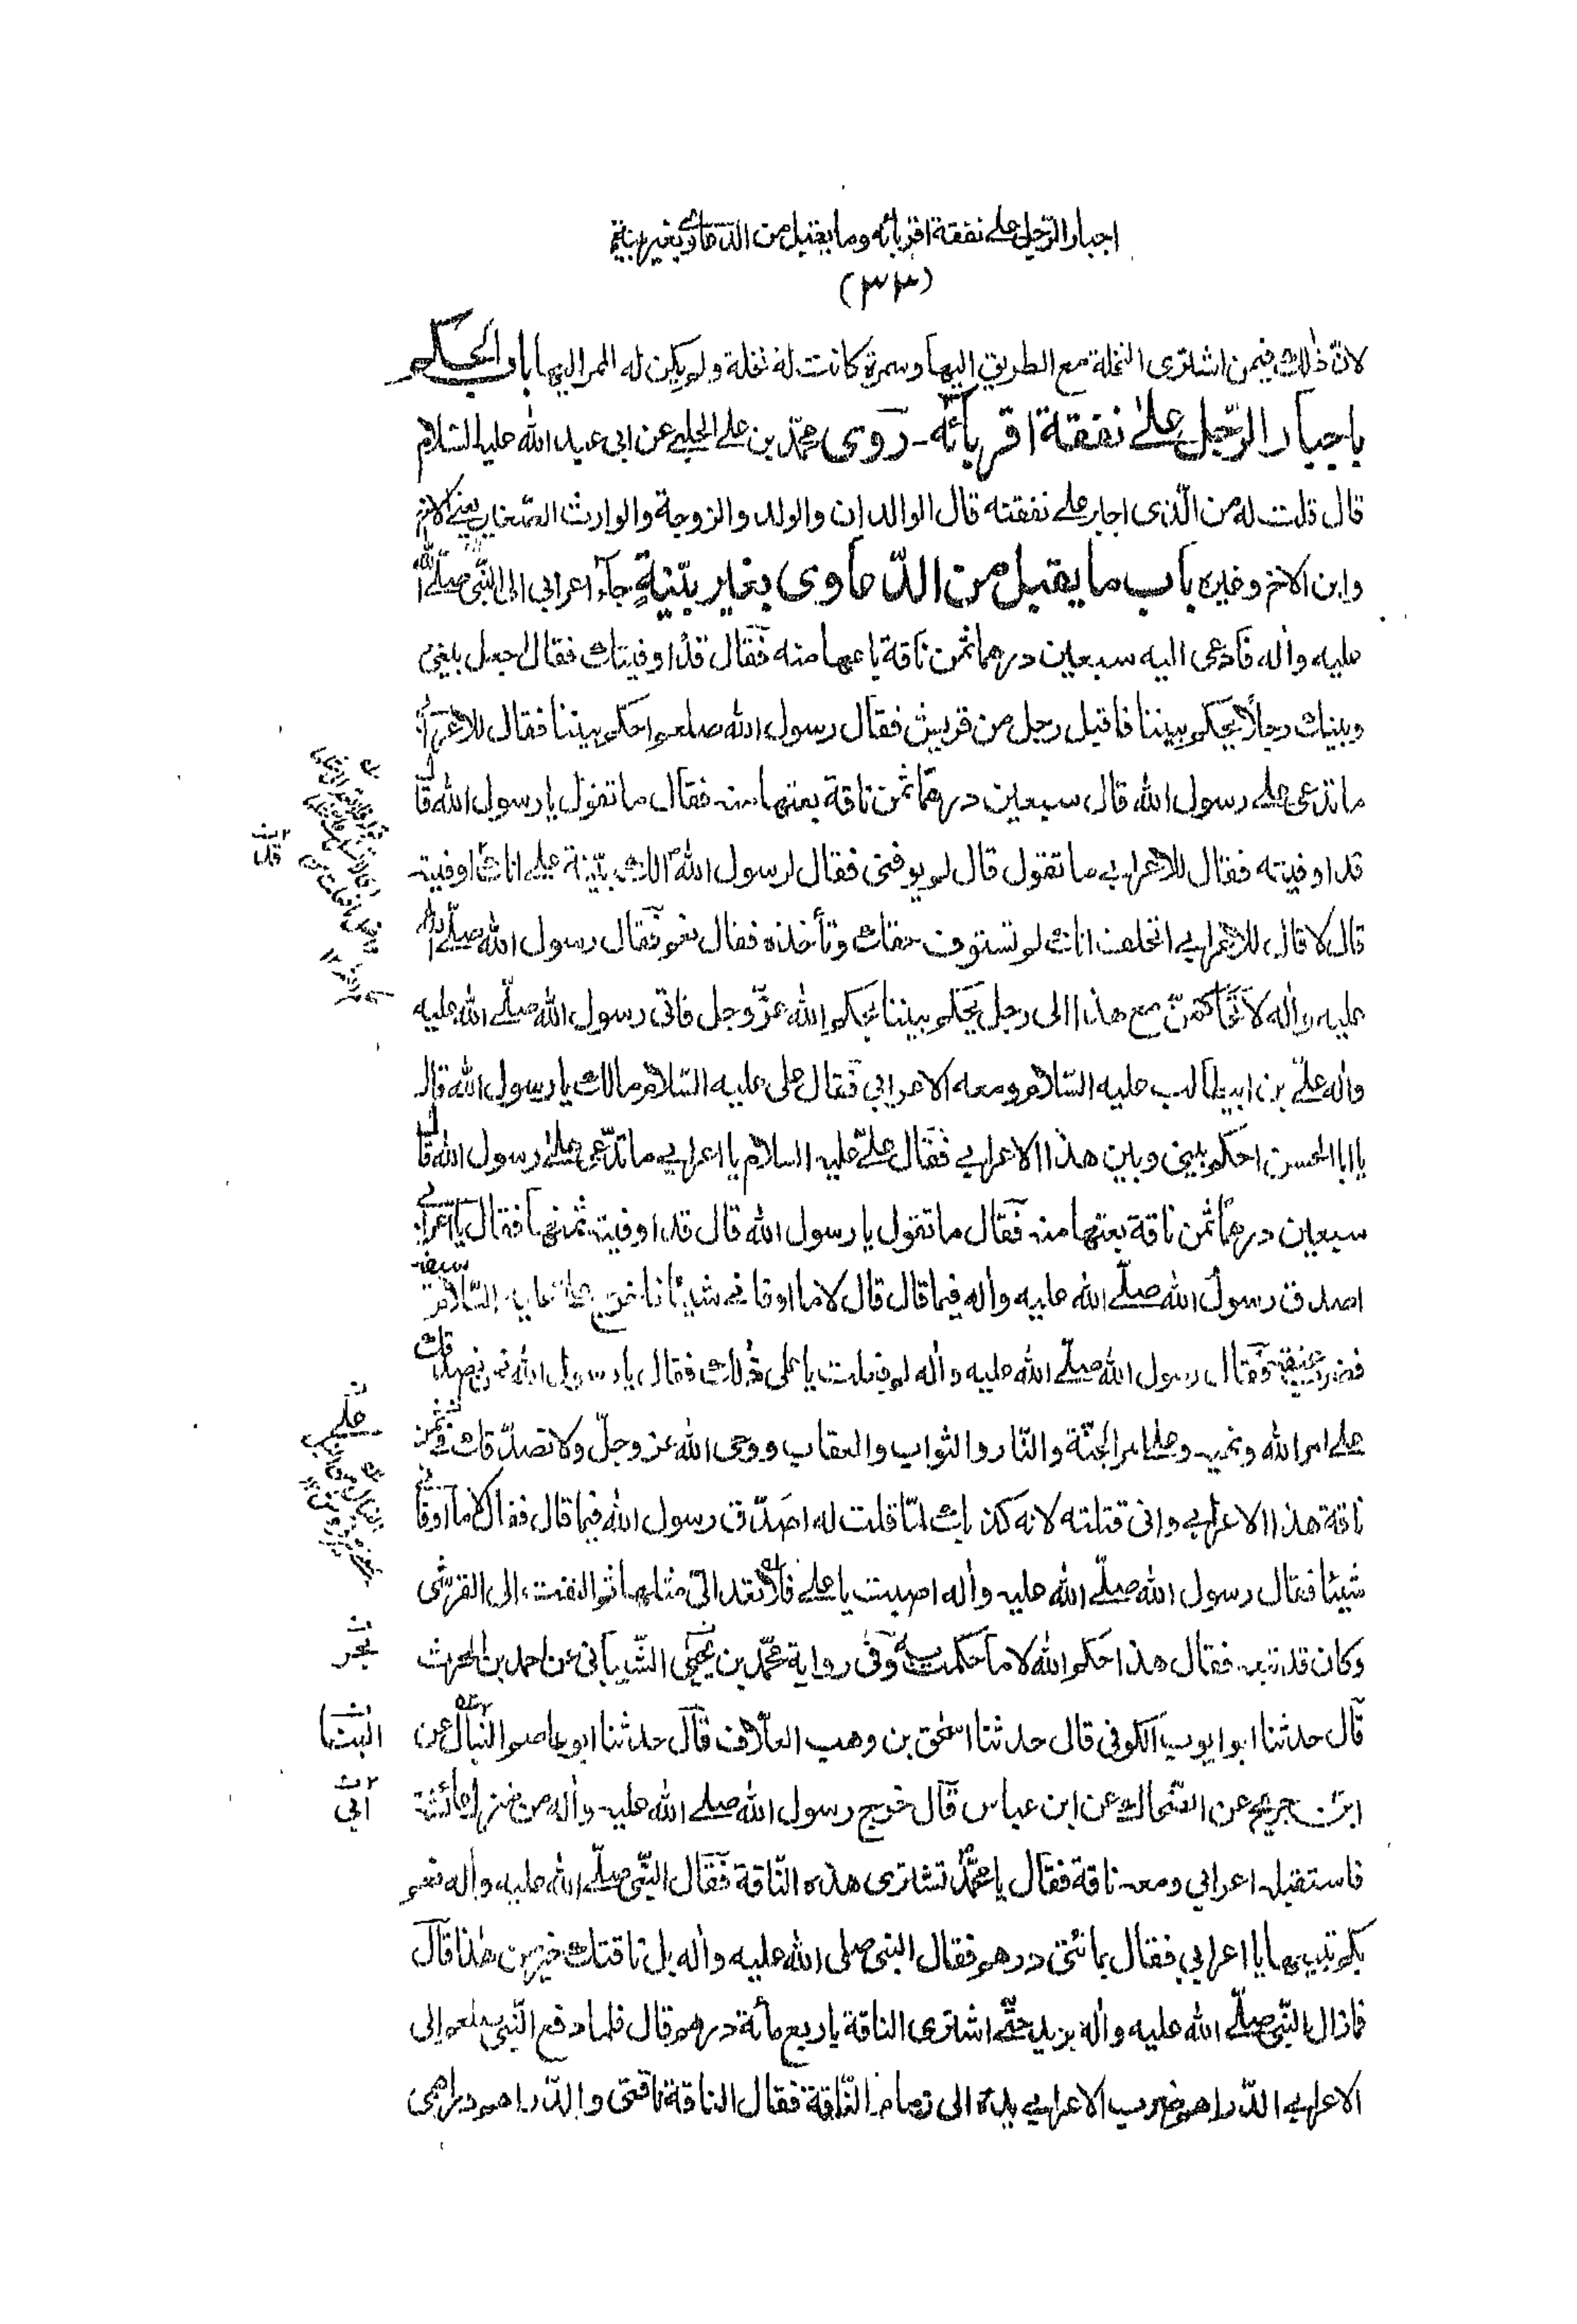 اجبار الرّجل على نفقة اقربائه وما يقبل من الدّعاوى بغير بينة
(٣٣)
لانّ ذٰلك فيمن اشترى النخلة مع الطريق اليها وسمرة كانت له نخلة ولم يكن له الممر اليها باب الحكم
باجبار الرّجل علىٰ نفقة اقربائه ـ روى محمّد بن على الحلبي عن ابى عبد الله عليه السّلام
قال قلت له من الّذى اجبر على نفقته قال الوالدان والولد والزوجة والوارث الصّغير يعنى الاخ
وابن الاخ وغيره باب ما يقبل من الدّعاوى بغير بيّنةٍ جاء اعرابى الى النّبى صلّى الله
عليه واٰله فادعى اليه سبعين درهما ثمن ناقة باعها منه فقال قد اوفيتك فقال اجعل بينى
وبينك رجلًا يحكم بيننا فاقبل رجل من قريش فقال رسول الله صلعم احكم بيننا فقال للاعرابى
ما تدعى على رسول الله قال سبعين درهمًا ثمن ناقة بعتها منه فقال ما تقول يا رسول الله قال
قد اوفيته فقال للاعرابي ما تقول قال لم يوفنى فقال لرسول الله الك بيّنة على انك اوفيته
قال لا قال للاعرابي اتحلف انك لم تستوف حقك وتأخذه فقال نعم فقال رسول الله صلّى الله
عليه واٰله لاتحاكمنّ مع هذا الى رجل يحكم بيننا بحكم الله عزّ وجل فاتى رسول الله صلّى الله عليه
واٰله علىّ بن ابيطالب عليه السّلام ومعه الاعرابي فقال على عليه السّلام مالك يا رسول الله قال
يا ابا الحسن احكم بينى وبين هذا الاعرابي فقال علىّ عليه السلام يا اعرابي ما تدّعى على رسول الله قال
سبعين درهمًا ثمن ناقة بعتها منه فقال ما تقول يا رسول الله قال قد اوفيته ثمنها فقال يا اعرابى
اصدق رسول الله صلّى الله عليه واٰله فيما قال قال لا ما اوفانى شيئا فاخرج علىّ عليه السّلام سيفه
فضرب عنقه فقال رسول الله صلّى الله عليه واٰله لم فعلت يا على ذٰلك فقال يا رسول الله نحن نصدقك
على امر الله ونهيه وعلى امر الجنّة والنّار والثواب والعقاب ووحى الله عز وجلّ ولا نصدّقك فى ثمن
ناقة هذا الاعرابي وانى قتلته لانه كذبك لمّا قلت له اصدّق رسول الله فيما قال فقال لا ما اوفانى
شيئا فقال رسول الله صلّى الله عليه واٰله اصبت يا على فلا تعد الى مثلها ثم التفت الى القرشى
وكان قد تبعه فقال هذا حكم الله لا ما حكمت به وفى رواية محمّد بن يحيى الشّيبانى عن احمد بن الحرث
قال حدثنا ابو ايوب الكوفى قال حدثنا اسحق بن وهب العلّاف قال حدثنا ابو عاصم النبال عن
ابن جريج عن الضّحاك عن ابن عباس قال خرج رسول الله صلى الله عليه واٰله من منزل عائشة
فاستقبله اعرابي ومعه ناقة فقال يا محمّد تشترى هذه النّاقة فقال النّبى صلّى الله عليه واٰله نعم
بكم تبيعها يا اعرابي فقال بمائتى درهم فقال النبى صلى الله عليه واٰله بل ناقتك خير من هٰذا قال
فما زال النّبى صلّى الله عليه واٰله يزيد حتّى اشترى الناقة باربع مائة درهم قال فلما دفع النّبى صلعم الى
الاعرابي الدّراهم ضرب الاعرابي يده الى زمام النّاقة فقال الناقة ناقتى والدّراهم دراهمى
قد
على
بحر
ابى